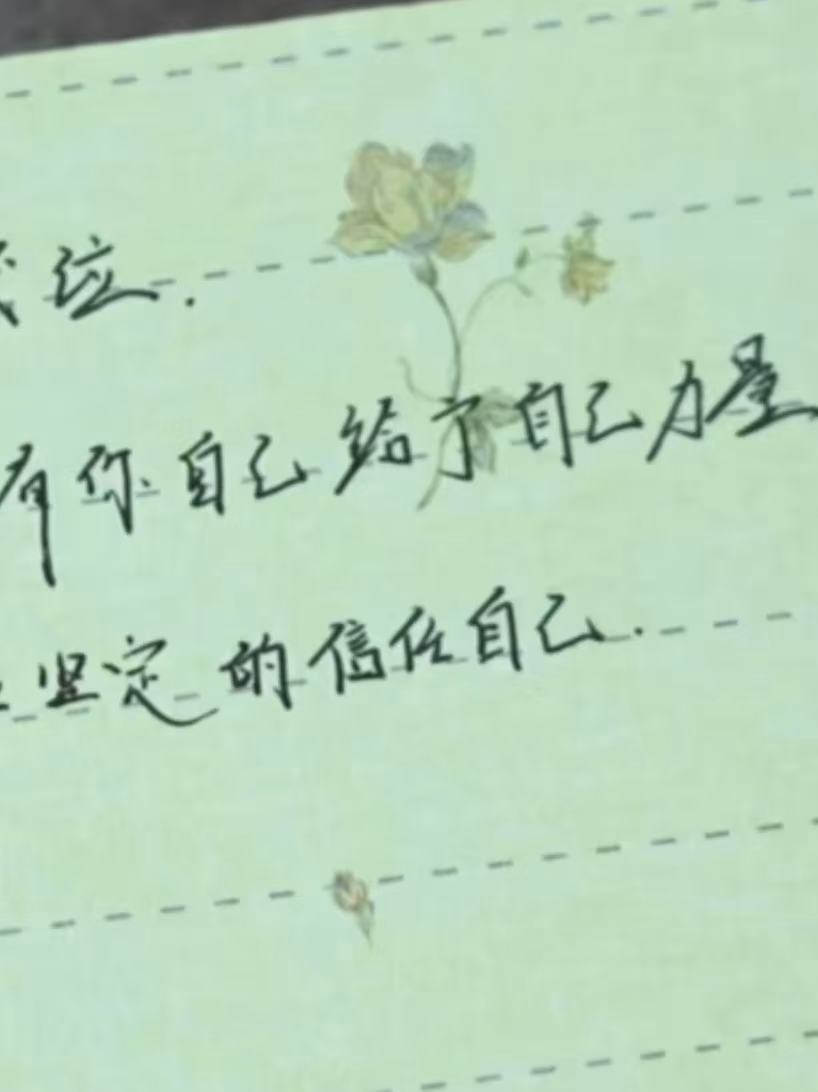 位.
有你自己给了自己力量
坚定的信任自己.